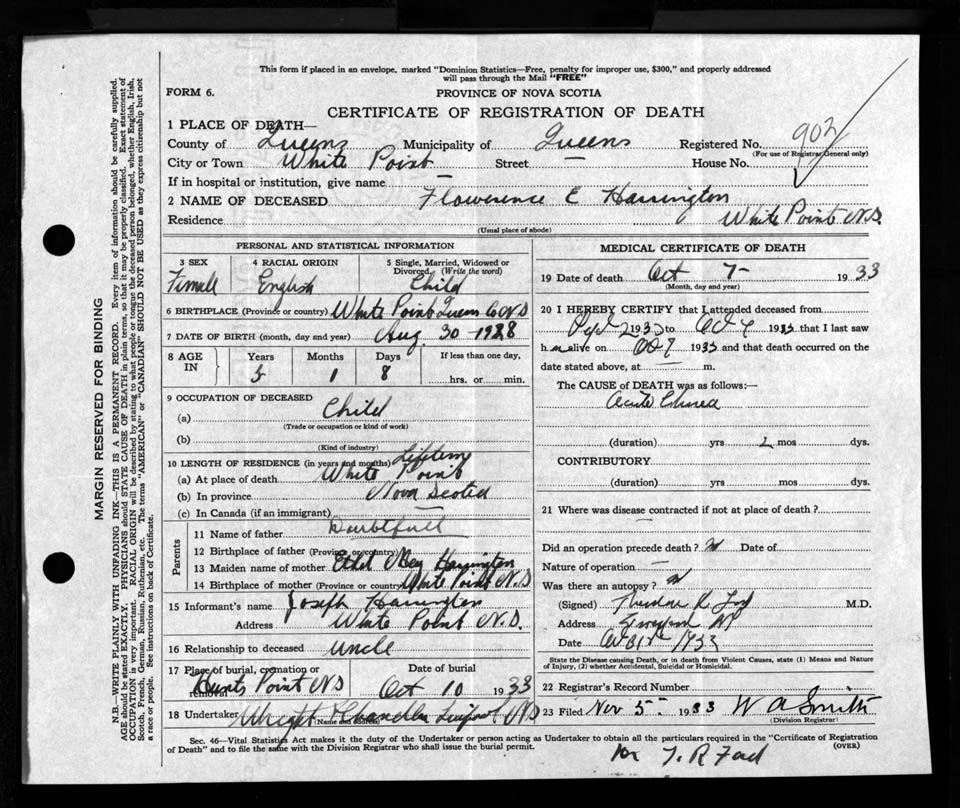 This form if placed in an envelope, marked "Dominion Statistics—Free, penalty for improper use, $300," and properly addressed
will pass through the Mail "FREE"
FORM 6.
PROVINCE OF NOVA SCOTIA
CERTIFICATE OF REGISTRATION OF DEATH
1 PLACE OF DEATH—
County of Queens Municipality of Queens Registered No. 902
(For use of Registrar General only)
City or Town White Point Street — House No.
If in hospital or institution, give name —
2 NAME OF DECEASED Flowerence E Harrington
Residence White Point N.S
(Usual place of abode)
PERSONAL AND STATISTICAL INFORMATION
3 SEX 4 RACIAL ORIGIN 5 Single, Married, Widowed or
Divorced. (Write the word)
Female English Child
6 BIRTHPLACE (Province or country) White Point Queens Co N.S
7 DATE OF BIRTH (month, day and year) Aug. 30 1928
8 AGE IN Years Months Days If less than one day,
1 8 hrs. or min.
9 OCCUPATION OF DECEASED
(a) Child
(Trade or occupation or kind of work)
(b)
(Kind of industry)
10 LENGTH OF RESIDENCE (in years and months) Lifetime
(a) At place of death White Point
(b) In province Nova Scotia
(c) In Canada (if an immigrant) —
Parents
11 Name of father Doubtfull
12 Birthplace of father (Province or country)
13 Maiden name of mother Ethel May Harrington
14 Birthplace of mother (Province or country) White Point N.S
15 Informant's name Joseph Harrington
Address White Point N.S.
16 Relationship to deceased Uncle
17 Place of burial, cremation or removal Hunts Point NS
Date of burial Oct 10 1933
18 Undertaker Wright Chandler Liverpool NS
MEDICAL CERTIFICATE OF DEATH
19 Date of death Oct 7— 1933
(Month, day and year)
20 I HEREBY CERTIFY that I attended deceased from
1933 to Oct 1933 that I last saw
h alive on Oct 7 1933 and that death occurred on the
date stated above, at — m.
The CAUSE of DEATH was as follows:—
Acute Chorea
(duration) yrs 2 mos dys.
CONTRIBUTORY
(duration) yrs. mos. dys.
21 Where was disease contracted if not at place of death?
Did an operation precede death? Date of
Nature of operation —
Was there an autopsy?
(Signed) Theodore R M.D.
Address
Date 1933
State the Disease causing Death, or in death from Violent Causes, state (1) Means and Nature
of Injury, (2) whether Accidental, Suicidal or Homicidal.
22 Registrar's Record Number
23 Filed Nov 5— 1933 W A Smith
(Division Registrar)
Sec. 46—Vital Statistics Act makes it the duty of the Undertaker or person acting as Undertaker to obtain all the particulars required in the "Certificate of Registration
of Death" and to file the same with the Division Registrar who shall issue the burial permit.
(OVER)
Dr T. R Ford
MARGIN RESERVED FOR BINDING
N.B.—WRITE PLAINLY WITH UNFADING INK—THIS IS A PERMANENT RECORD. Every item of information should be carefully supplied.
AGE should be stated EXACTLY. PHYSICIANS should STATE CAUSE OF DEATH in plain terms, so that it may be properly classified. Exact statement of
OCCUPATION is very important. RACIAL ORIGIN will be described by stating to what people or tongue the deceased person belonged, whether English, Irish,
Scotch, French, German, Russian, Ruthenian, etc. The terms "AMERICAN" or "CANADIAN" SHOULD NOT BE USED as they express citizenship but not
a race or people. See instructions on back of Certificate.